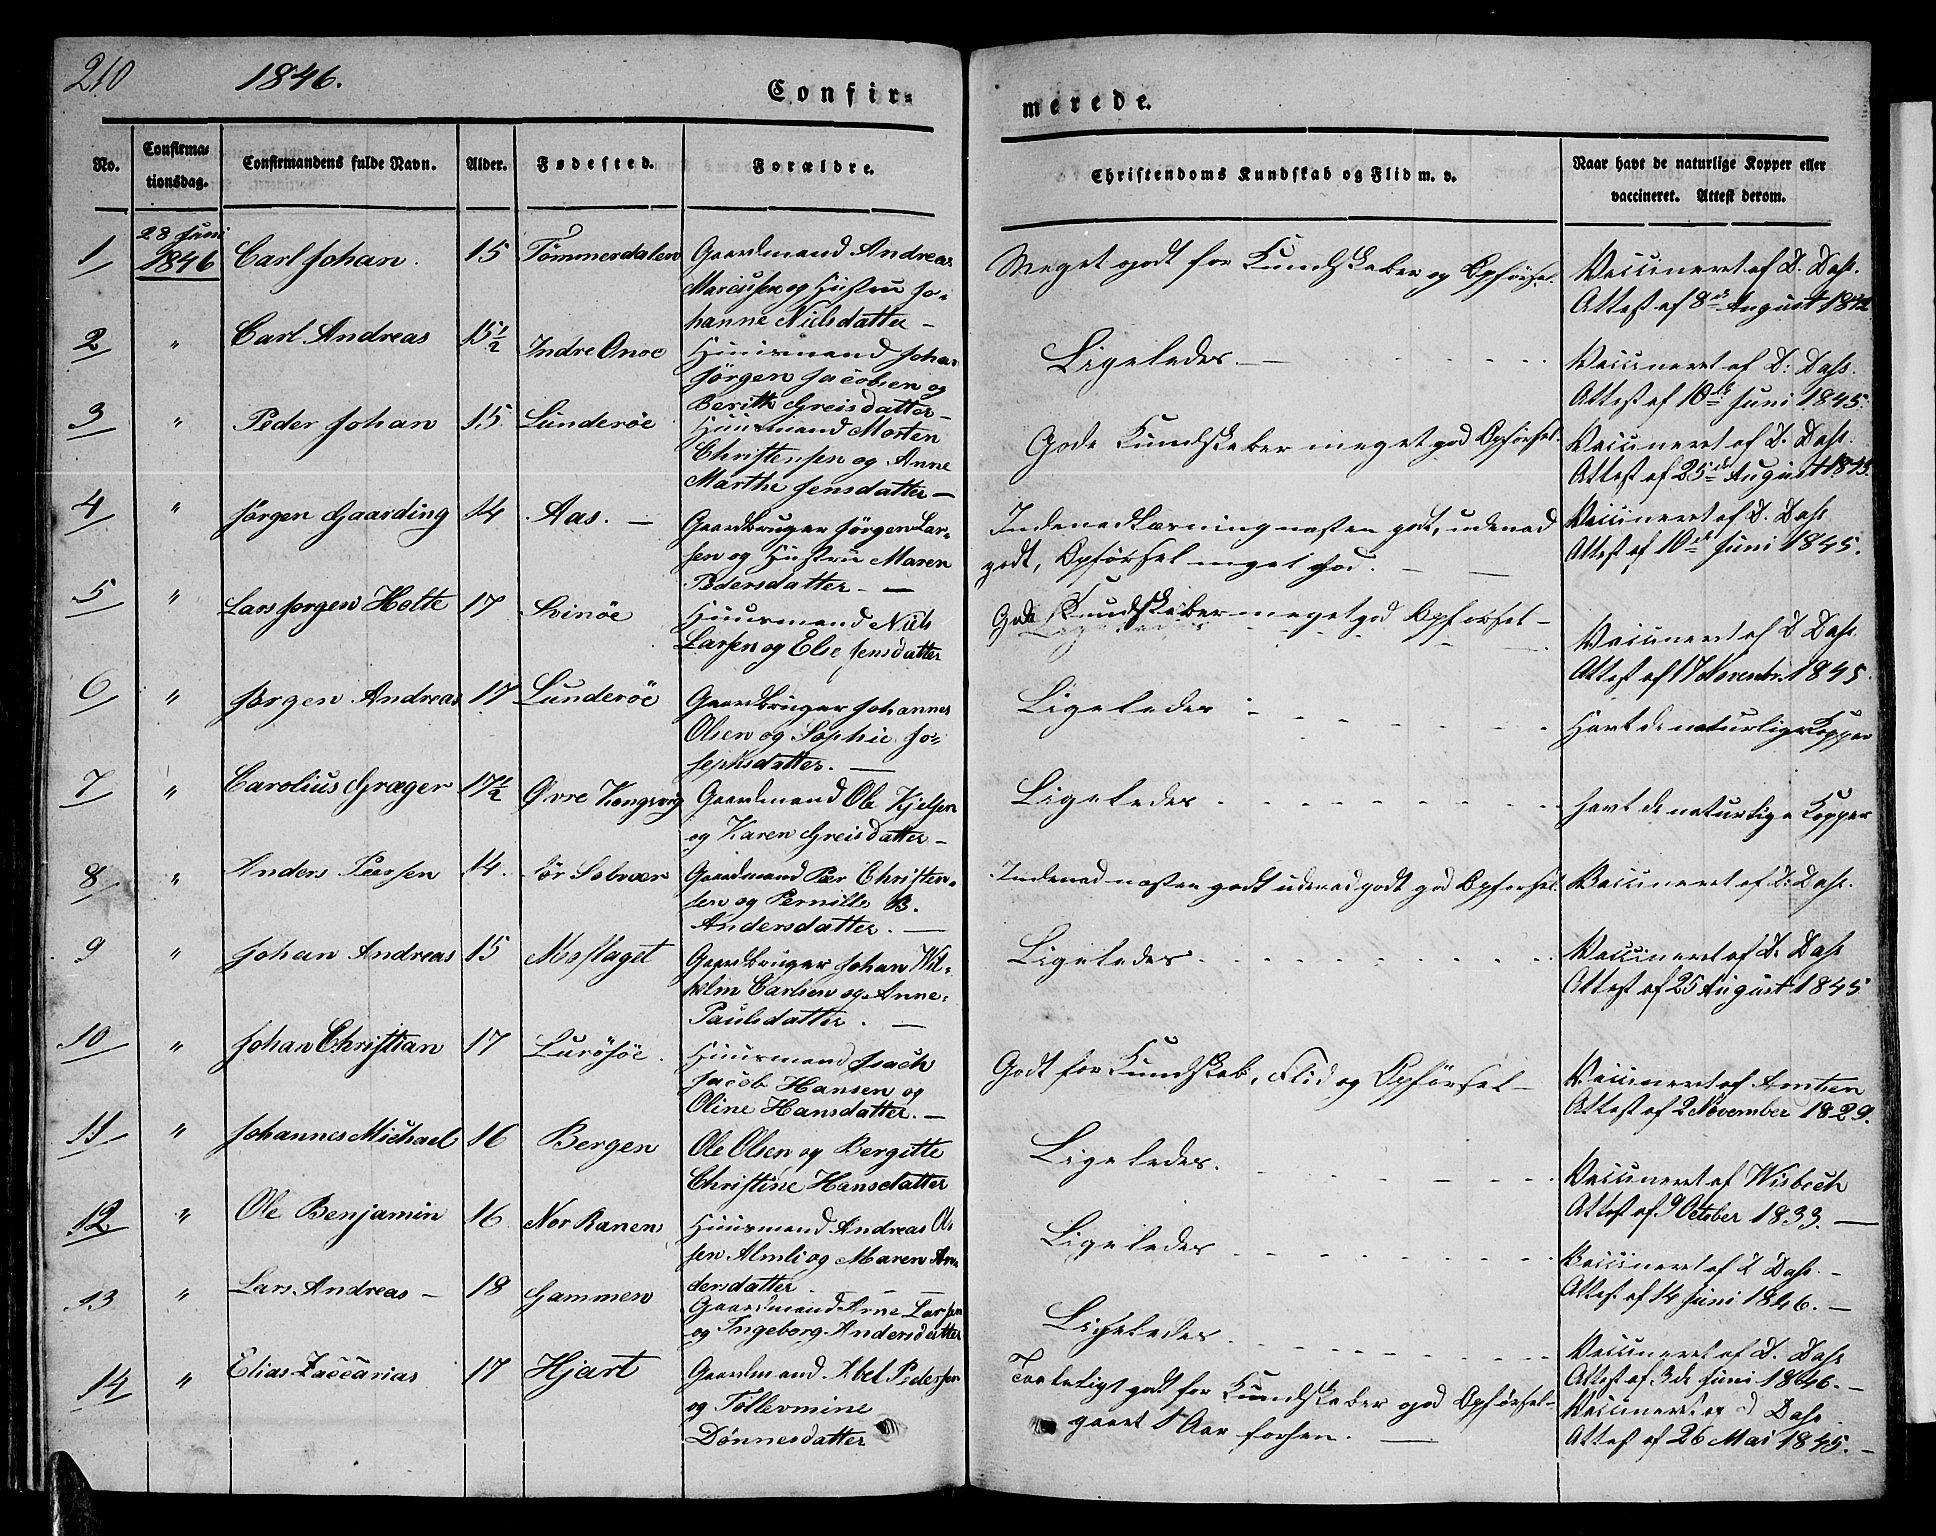 210
1846.
Confir-
merede.
No.
Confirma-
tionsdag.
Confirmandens fulde Navn.
Alder.
Fødested.
Forældre.
Christendoms Kundskab og Flid m. v.
Naar havt de naturlige Kopper eller
vaccineret. Attest derom.
1
28 Juni
1846
Carl Johan.
15
Tömmerdalen
Gaardmand Andreas
Marcussen og Hustru Jo-
hanne Nielsdatter –
Meget godt for Kundskaber og Opførsel.
Vaccineret af D. Dahl.
Attest af 8de August 1842
2
"
Carl Andreas
15½
Indre Onoe
Huusmand Johan
Jörgen Jacobsen og
Berith Greisdatter –
Ligeledes. –
Vaccineret af D: Dahl.
Attest af 10de Juni 1845.
3
"
Peder Johan
15
Lunderöe
Huusmand Morten
Christensen og Anne
Marthe Jensdatter –
Gode Kundskaber meget god Opførsel.
Vaccineret af D. Dahl.
Attest af 25de August 1845.
4
"
Jørgen Gaarding
14
Aas. –
Gaardbruger Jörgen Lar-
sen og Hustru Maren
Pedersdatter –
Indenadlæsning næsten godt, udenad
godt, Opførsel meget god. –
Vaccineret af D. Dahl
Attest af 10de Juni 1845.
5
"
Lars Jørgen Holte
17
Svinöe
Huusmand Niels
Larsen og Else Jensdatter
Gode Kundskaber meget god Opførsel –
Vaccineret af D Dahl
Attest af 17 Novembr. 1845.
6
"
Jørgen Andreas
17
Lunderöe
Gaardbruger Johannes
Olsen og Sophie Jo-
sephsdatter. –
Ligeledes
Havt de naturlige Kopper
7
"
Carolius Græger
17½
Øvre Kongsvig
Gaardmand Ole Kjelsen
og Karen Greisdatter –
Ligeledes
Havt de naturlige Kopper
8
"
Anders Peersen
14.
Sör Solvær
Gaardmand Peer Christen-
sen og Pernille B.
Andersdatter. –
Indenad næsten godt udenad godt god Opførsel.
Vaccineret af D: Dahl.
9
"
Johan Andreas
15
Moflaget
Gaardbruger Johan Wil-
helm Carlsen og Anne
Paulsdatter. –
Ligeledes
Vaccineret af D. Dahl
Attest af 25 August 1845
10
"
Johan Christian
17
Luröföe.
Huusmand Isach
Jacob Hansen og
Oline Hansdatter. –
Godt for Kundskab, Flid og Opførsel –
Vaccineret af Amtsen
Attest af 2 November 1829.
11
"
Johannes Michael
16
Bergen
Ole Olsen og Bergitte
Christine Hansdatter
Ligeledes.
Vaccineret af Wisbech
Attest af 9 October 1833. –
12
"
Ole Benjamin
16
Nor Ranen
Huusmand Andreas Ol-
sen Almli og Maren An-
dersdatter
Ligeledes
Vaccineret af D Dahl. –
Attest af 14 Juni 1846. –
13
"
Lars Andreas –
18
Gammen
Gaardmand Arne Larsen
og Ingeborg Andersdatter
Ligeledes
Vaccineret af D. Dahl
Attest af 3de Juni 1846. –
14
"
Elias Zaccarias
17
Hjart
Gaardmand Abel Pedersen
og Tollevmine
Dönnesdatter
Taaleligt godt for Kundskaber god Opførsel –
gaaet 1 Aar forhen. –
Vaccineret af D Dahl.
Attest af 26 Mai 1845. –